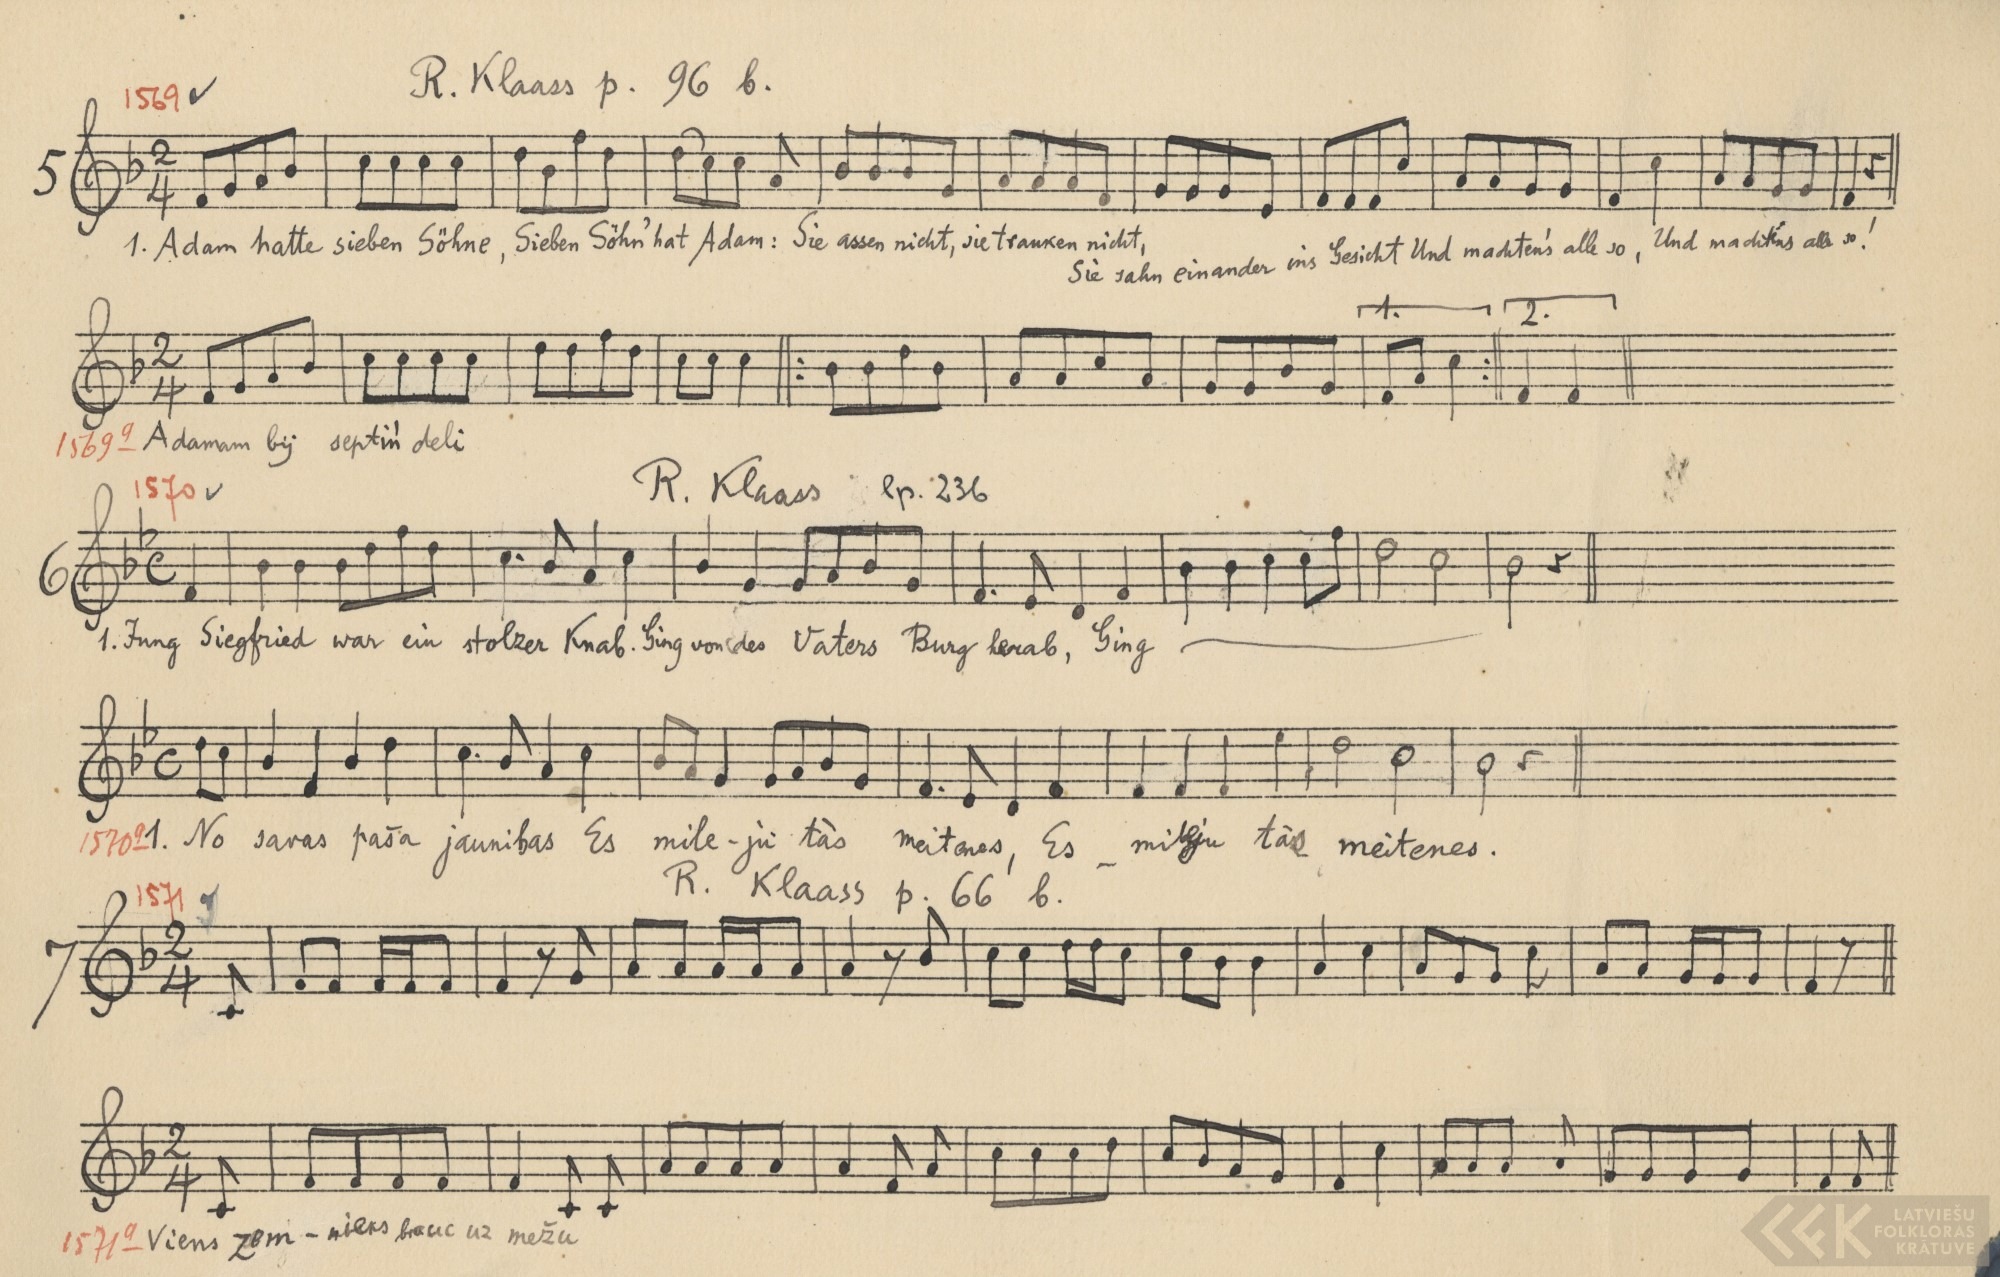 1569 ✓ R. Klaass p. 96 b.
5
1. Adam hatte sieben Söhne, Sieben Söhn' hat Adam: Sie assen nicht, sie tranken nicht,
Sie sahn einander ins Gesicht Und machten's alle so, Und machten's alle so!
1. 2.
1569a Adamam bij septiń deli
1570 ✓ R. Klaass lp. 236
6
1. Jung Siegfried war ein stolzer Knab. Ging von des Vaters Burg herab, Ging
1570a 1. No savas paša jaunibas Es mile-ju tàs meitenes, Es mileju tàs meitenes.
1571 R. Klaass p. 66 b.
7
1571a Viens zem-nieks brauc uz mežu
LATVIEŠU
FOLKLORAS
KRĀTUVE